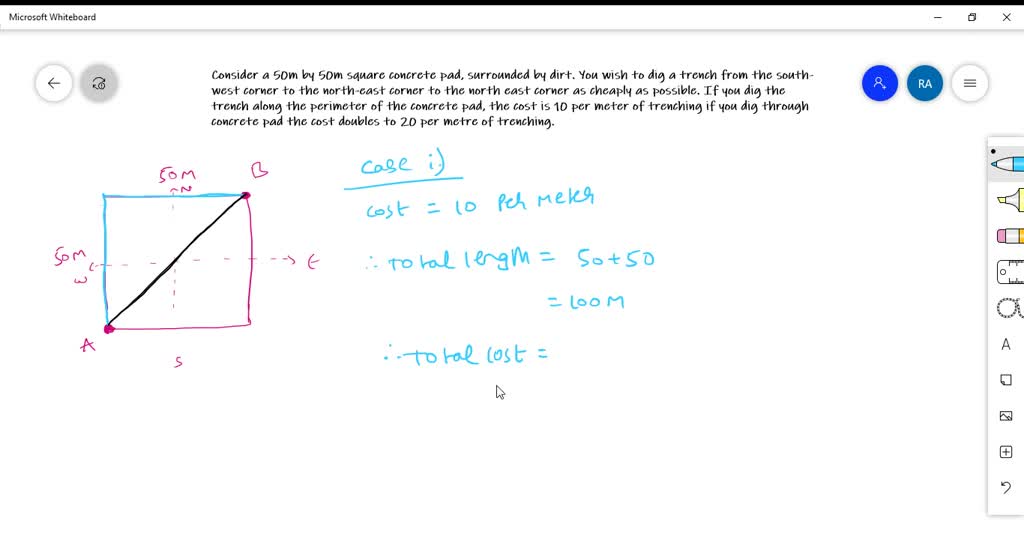 Microsoft Whiteboard
Consider a 50m by 50m square concrete pad, surrounded by dirt. You wish to dig a trench from the south-
west corner to the north-east corner to the north east corner as cheaply as possible. If you dig the
trench along the perimeter of the concrete pad, the cost is 10 per meter of trenching if you dig through
concrete pad the cost doubles to 20 per metre of trenching.
RA
Case i)
50M
B
N
cost = 10 Per meter
50M
W
E
∴ Total length = 50+50
= 100M
A
S
∴ Total cost =
A